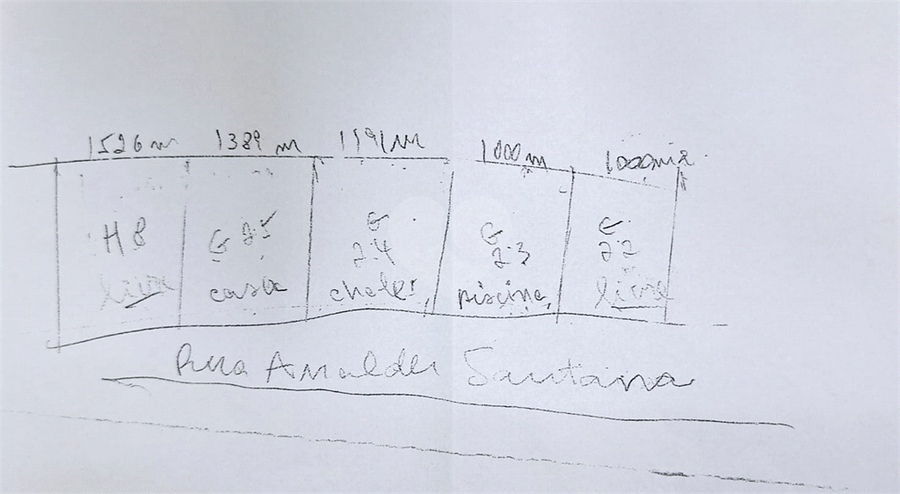 1526 m 1389 m 1191 m 1000 m 1000 m2
H8 G 25 G 24 G 23 G 22
livre casa chalet piscina livre
Rua Arnaldo Santana